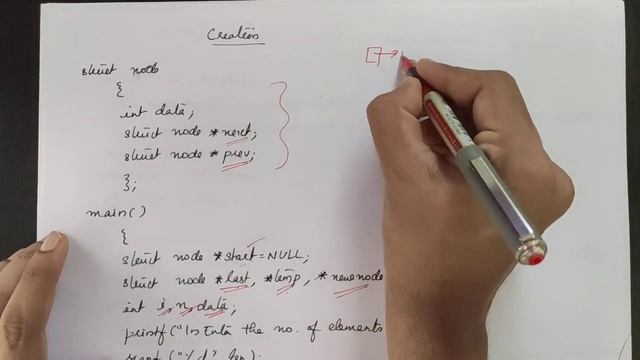 Creation
struct node
{
int data;
struct node * next;
struct node * prev;
};
main()
{
struct node *start=NULL;
struct node *last, *temp, *newnode
int i, n, data;
printf("\n Enter the no. of elements
scanf("%d", &n);